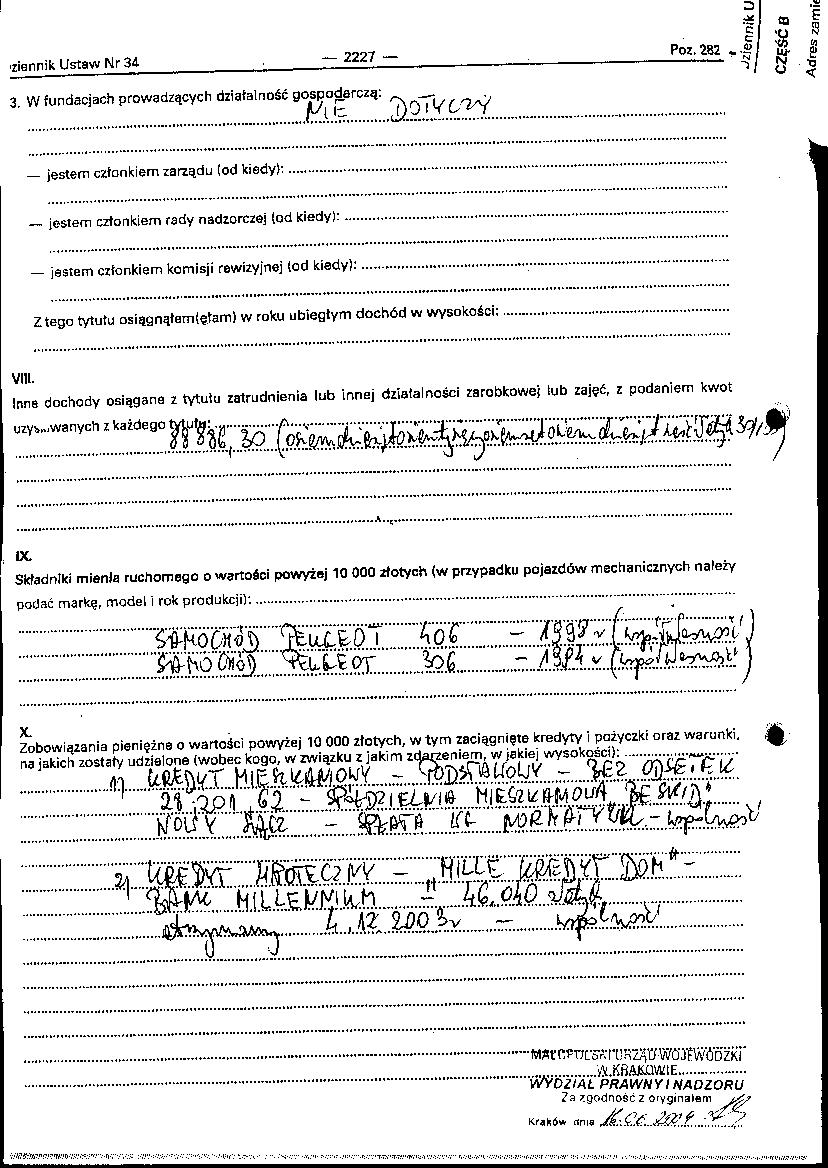 ziennik Ustaw Nr 34 — 2227 — Poz. 282
3. W fundacjach prowadzących działalność gospodarczą:
NIE DOTYCZY
— jestem członkiem zarządu (od kiedy):
— jestem członkiem rady nadzorczej (od kiedy):
— jestem członkiem komisji rewizyjnej (od kiedy):
Z tego tytułu osiągnąłem(ęłam) w roku ubiegłym dochód w wysokości:
VIII.
Inne dochody osiągane z tytułu zatrudnienia lub innej działalności zarobkowej lub zajęć, z podaniem kwot
uzyskiwanych z każdego tytułu:
88 886,30 (osiemdziesiąt osiem tysięcy osiemset osiemdziesiąt sześć złotych 30/100)
IX.
Składniki mienia ruchomego o wartości powyżej 10 000 złotych (w przypadku pojazdów mechanicznych należy
podać markę, model i rok produkcji):
SAMOCHÓD PEUGEOT 406 – 1998 r (współwłasność)
SAMOCHÓD PEUGEOT 306 – 1994 r (współwłasność)
X.
Zobowiązania pieniężne o wartości powyżej 10 000 złotych, w tym zaciągnięte kredyty i pożyczki oraz warunki,
na jakich zostały udzielone (wobec kogo, w związku z jakim zdarzeniem, w jakiej wysokości):
1) KREDYT MIESZKANIOWY – PODSTAWOWY – BEZ ODSETEK
28.201,62 – SPÓŁDZIELNIA MIESZKANIOWA "BESKID"
NOWY SĄCZ – SPŁATA WG NORMATYWU – wspólność
2) KREDYT HIPOTECZNY – "MILLE KREDYT DOM" –
BANK MILLENNIUM – 46.040 złotych
otrzymany 4.12.2003r – wspólność
MAŁOPOLSKI URZĄD WOJEWÓDZKI
W KRAKOWIE
WYDZIAŁ PRAWNY I NADZORU
Za zgodność z oryginałem
Kraków dnia
Dziennik U
CZĘŚĆ B
Adres zamie